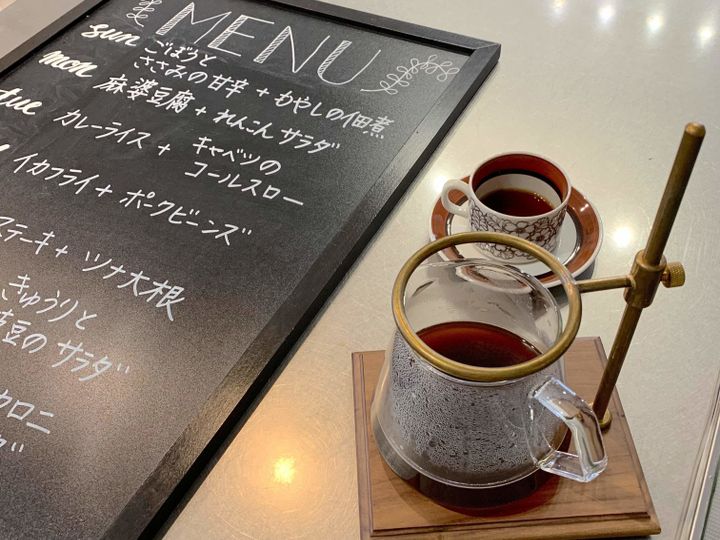 MENU
sun ごぼうと
ささみの甘辛 + もやしの佃煮
mon 麻婆豆腐 + れんこん サラダ
tue カレーライス + キャベツの
コールスロー
イカフライ + ポークビーンズ
ステーキ + ツナ大根
きゅうりと
豆の サラダ